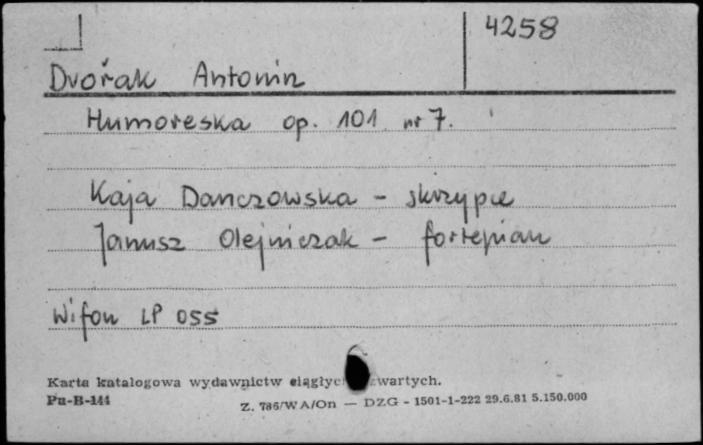 4258
Dvořak Antonin
Humoreska op. 101 nr 7.
Kaja Danczowska - skrzypce
Janusz Olejniczak - fortepian
Wifon LP 055
Karta katalogowa wydawnictw ciągłych zwartych.
Pu-B-144
Z. 786/WA/On — DZG - 1501-1-222 29.6.81 5.150.000